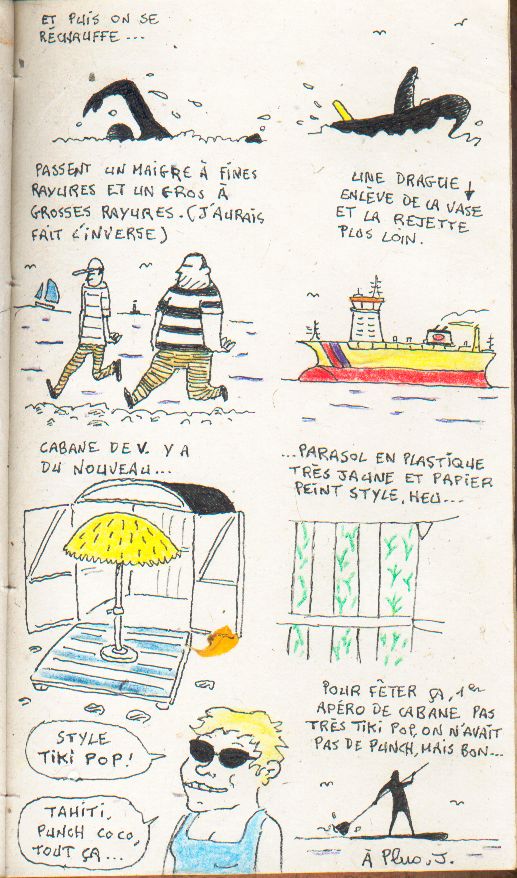 ET PUIS ON SE
RÉCHAUFFE...
PASSENT UN MAIGRE À FINES
RAYURES ET UN GROS À
GROSSES RAYURES. (J'AURAIS
FAIT L'INVERSE)
UNE DRAGUE
ENLÈVE DE LA VASE
ET LA REJETTE
PLUS LOIN.
CABANE DE V. Y A
DU NOUVEAU...
...PARASOL EN PLASTIQUE
TRÈS JAUNE ET PAPIER
PEINT STYLE, HEU...
STYLE
TIKI POP!
TAHITI,
PUNCH COCO,
TOUT ÇA...
POUR FÊTER ÇA, 1er
APÉRO DE CABANE PAS
TRÈS TIKI POP, ON N'AVAIT
PAS DE PUNCH, MAIS BON...
À Plus, J.